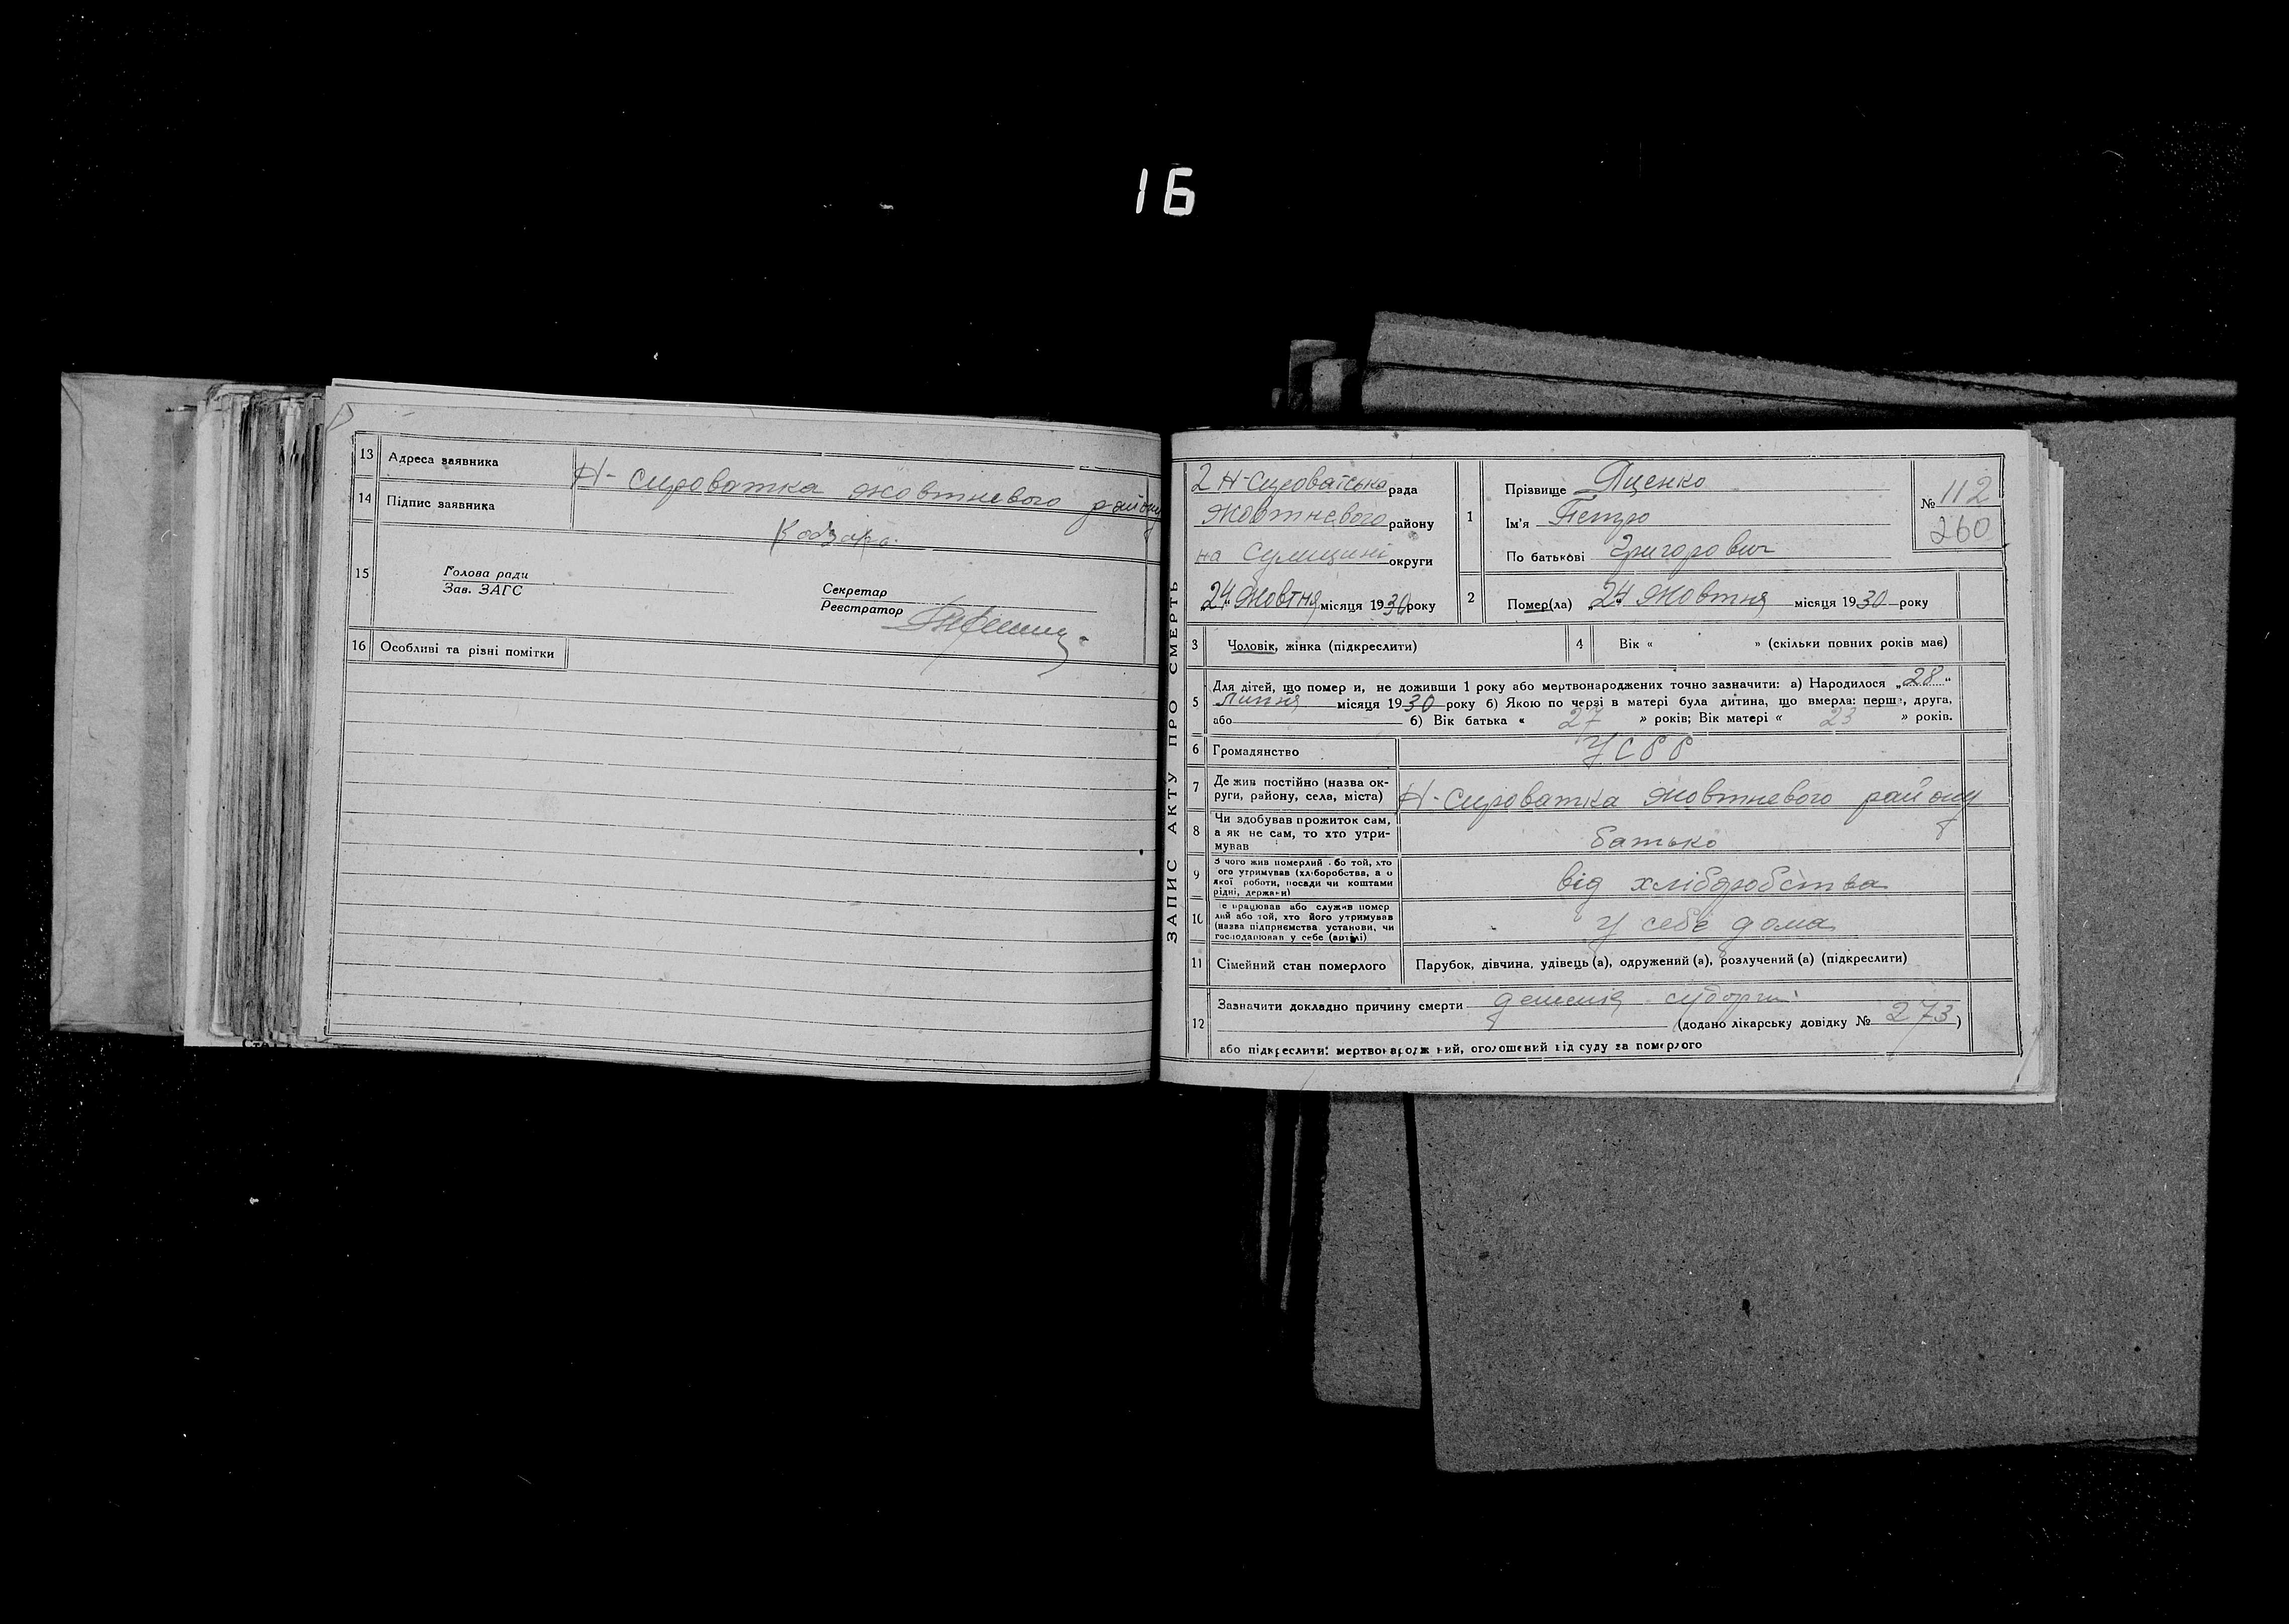 16
13 Адреса заявника Н-Сироватка Жовтневого району
14 Підпис заявника
15 Голова ради
Зав. ЗАГС
Секретар
Реєстратор
16 Особливі та різні помітки
ЗАПИС АКТУ ПРО СМЕРТЬ
2 Н-Сироватська рада
Жовтневого району
на Сумщині округи
24 Жовтня місяця 1930 року
1 Прізвище Яценко
Ім'я Петро
По батькові Григорович
№ 112
260
2 Помер(ла) 24 Жовтня місяця 1930 року
3 Чоловік, жінка (підкреслити)
4 Вік « » (скільки повних років має)
5 Для дітей, що помер и, не доживши 1 року або мертвонароджених точно зазначити: а) Народилося „28“
Липня місяця 1930 року б) Якою по черзі в матері була дитина, що вмерла: перша, друга,
або б) Вік батька « 27 » років; Вік матері « 23 » років.
6 Громадянство УСРР
7 Де жив постійно (назва ок-
руги, району, села, міста) Н-Сироватка Жовтневого району
8 Чи здобував прожиток сам,
а як не сам, то хто утри-
мував батько
9 З чого жив померлий або той, хто
його утримував (хліборобства, а о
якої роботи, посади чи коштами
рідні, держави) від хліборобства
10 е працював або служив помер
лий або той, хто його утримував
(назва підприємства установи, чи
господарював у себе (артілі) у себе дома
11 Сімейний стан померлого Парубок, дівчина, удівець (а), одружений (а), розлучений (а) (підкреслити)
12 Зазначити докладно причину смерти
(додано лікарську довідку № 273)
або підкреслити: мертвонародж ний, оголошений від суду за померлого